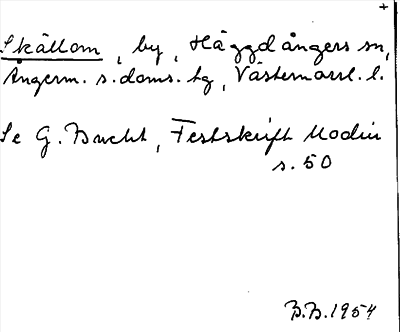 +
Skållom, by, Häggdångers sn,
Ångerm. s. doms. tg, Västernorrl. l.
Se G. Bucht, Festskrift Modin
s. 50
B.B. 1954